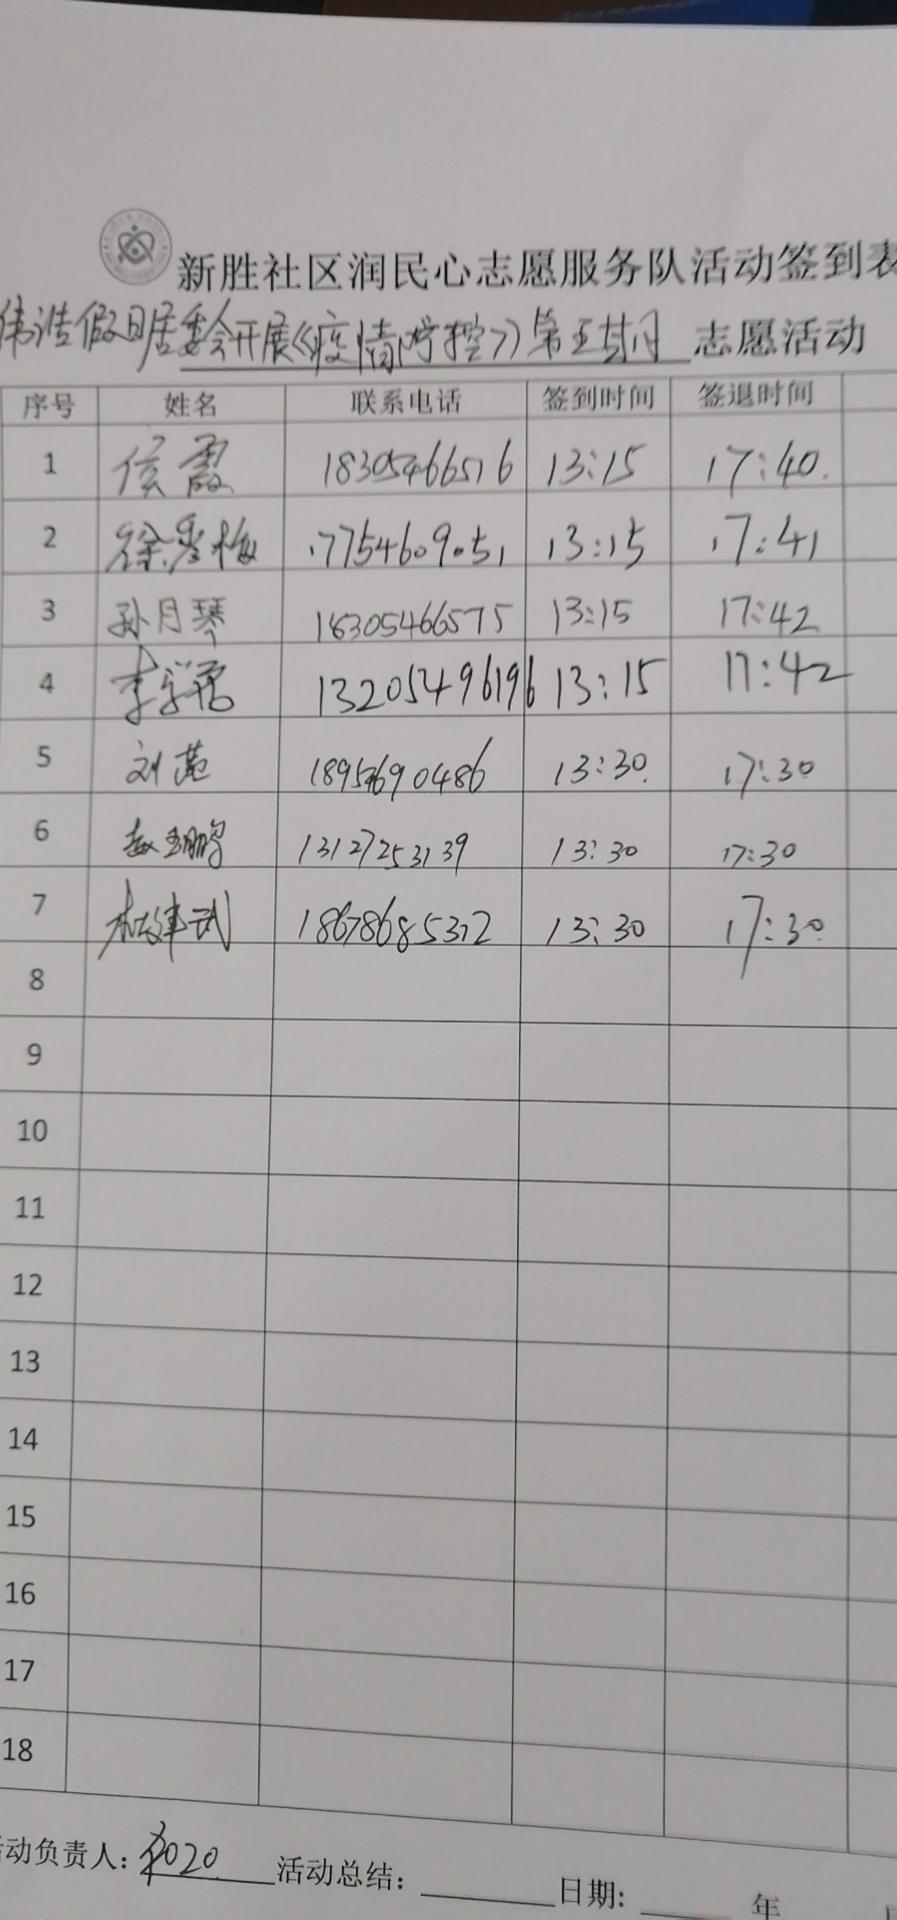 新胜社区润民心志愿服务队活动签到表
伟浩假日居委会开展《疫情防控》第五期 志愿活动
序号 姓名 联系电话 签到时间 签退时间
1 侯霞 18305466516 13:15 17:40
2 徐秀梅 17754609051 13:15 17:41
3 孙月琴 18305466575 13:15 17:42
4 李 13205496196 13:15 17:42
5 刘 13:30 17:30
6 赵玉鹏 13127253139 13:30 17:30
7 18678685372 13:30 17:30
8
9
10
11
12
13
14
15
16
17
18
活动负责人: 2020 活动总结: 日期: 年